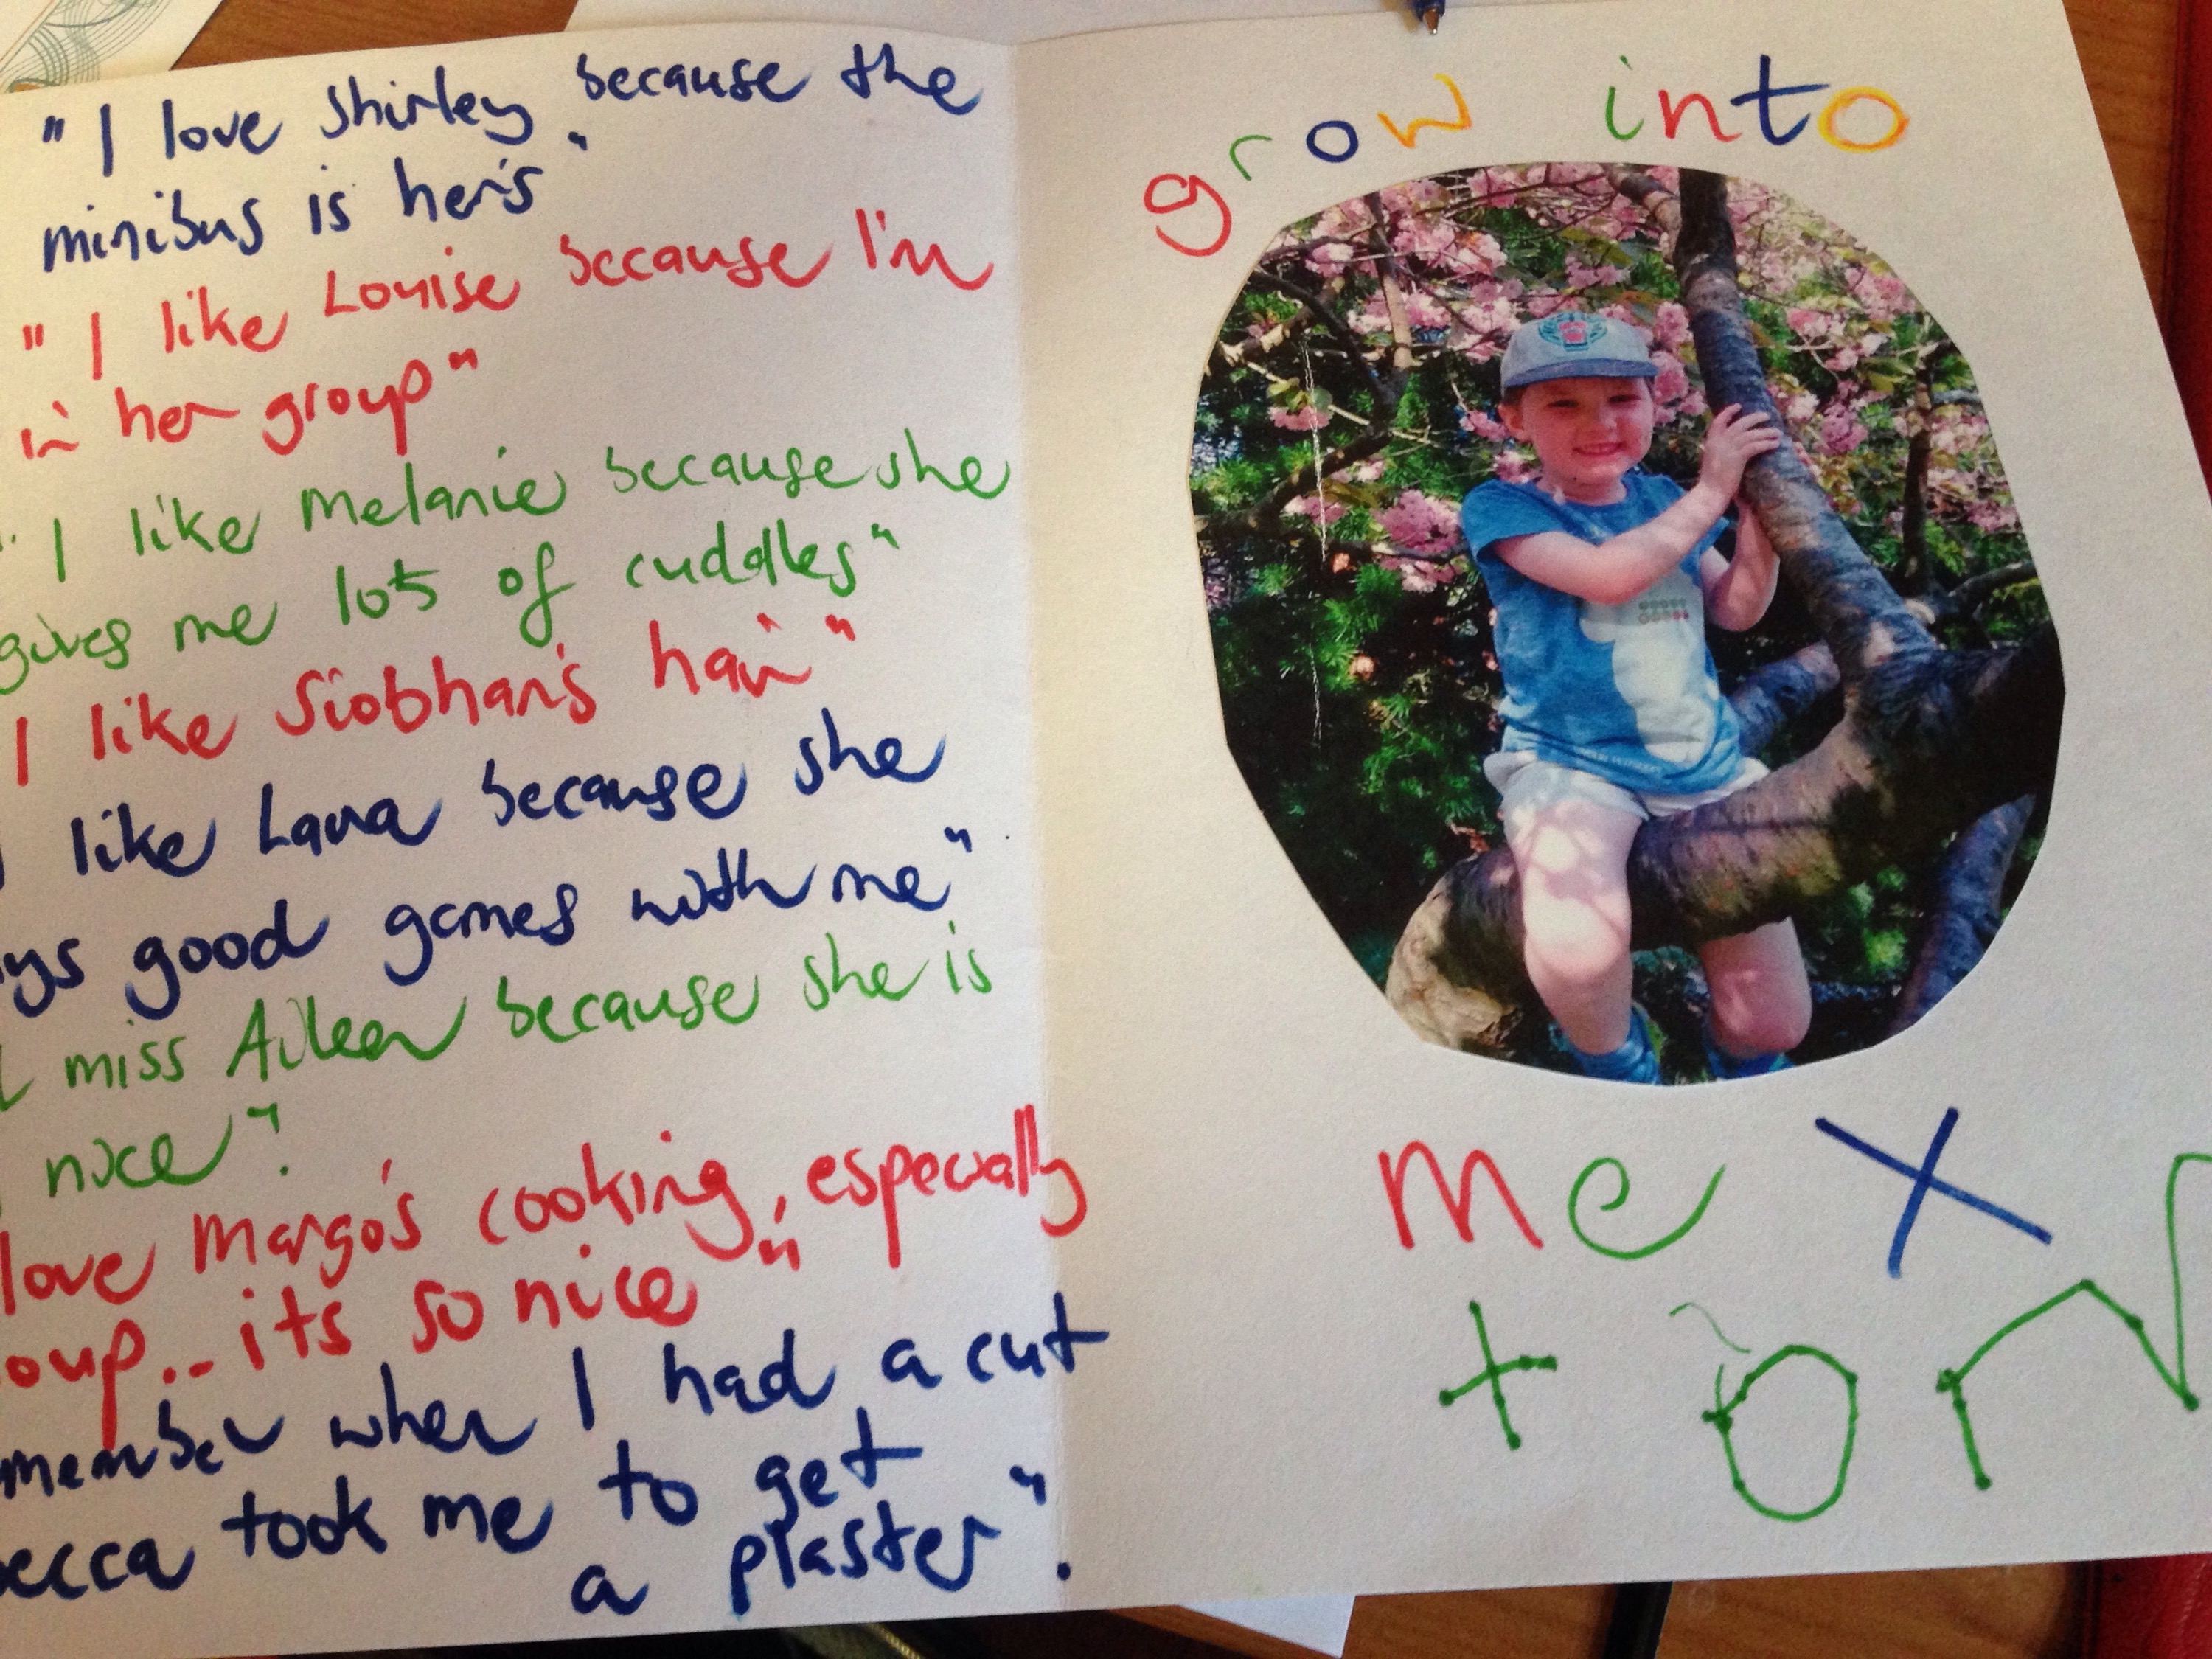 "I love Shirley because the
minibus is her's"
"I like Louise because I'm
in her group"
"I like Melanie because she
gives me lots of cuddles"
I like Siobhan's hair"
I like Laura because she
ays good games with me"
I miss Aileen because she is
nice".
love Margo's cooking, especially
oup... its so nice"
member when I had a cut
becca took me to get
a plaster".
grow into
me X
tom